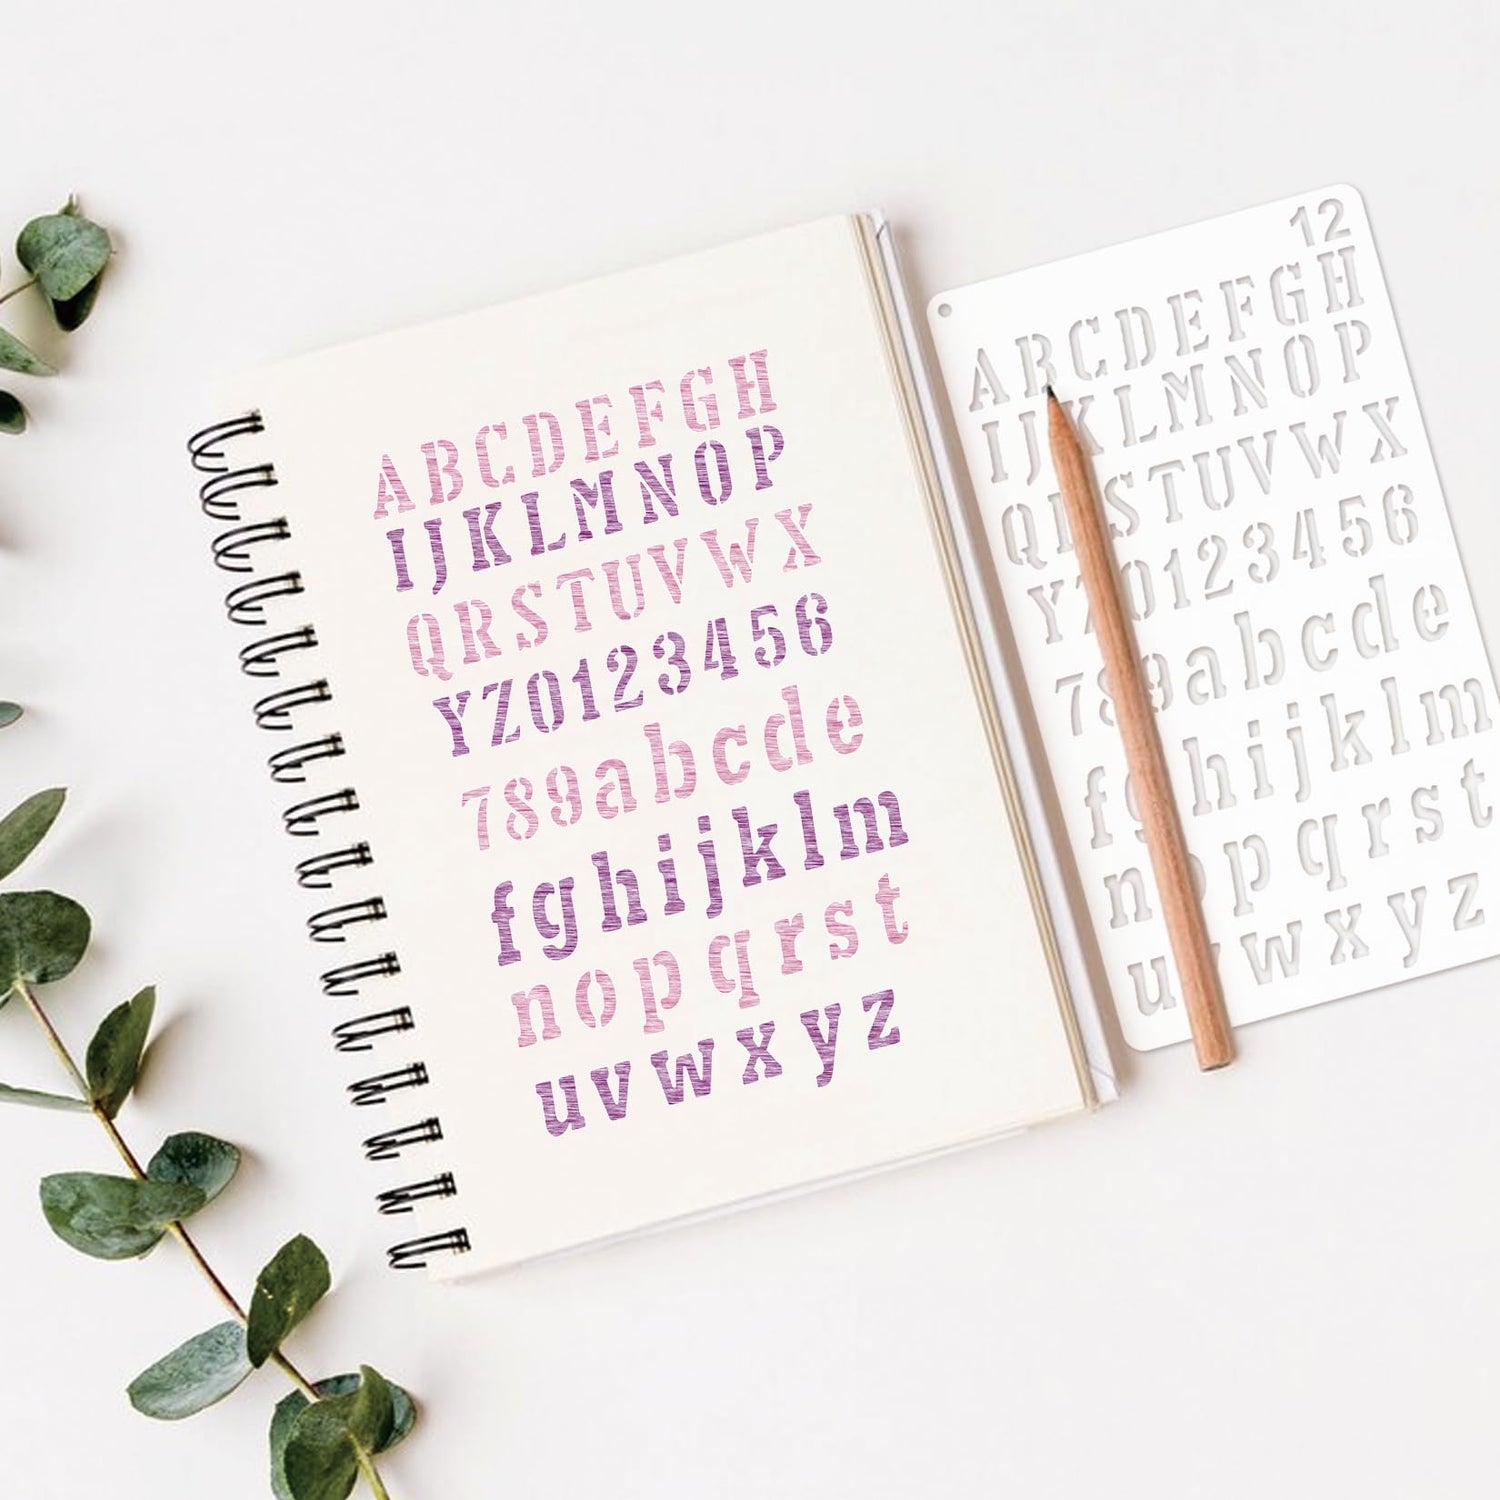 ABCDEFGH
IJKLMNOP
QRSTUVWX
YZ0123456
789abcde
fghijklm
nopqrst
uvwxyz
12
ABCDEFGH
IJKLMNOP
QRSTUVWX
YZ0123456
789abcde
fghijklm
nopqrst
uvwxyz